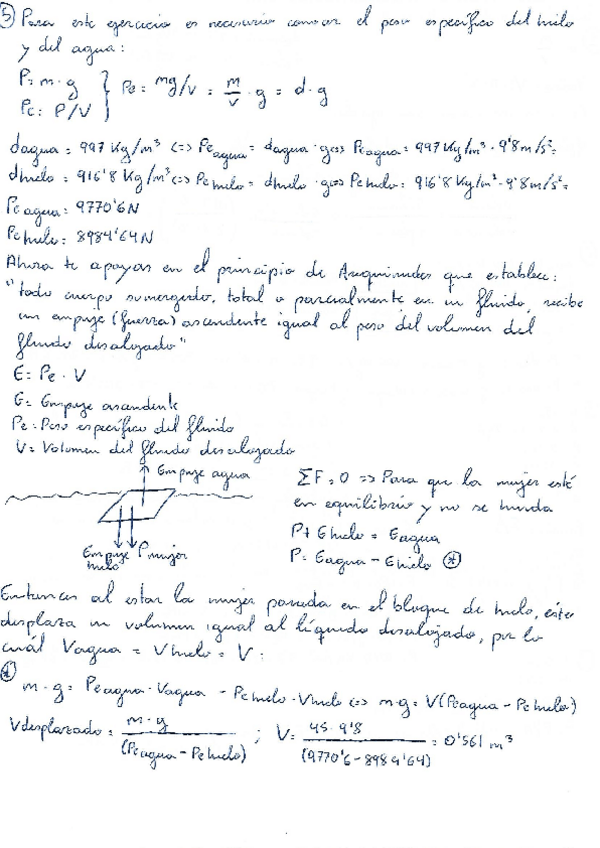 5) Para este ejercicio es necesario conocer el peso específico del hielo
y del agua:
P = m · g } Pe = mg/V = m/V · g = d · g
Pe = P/V
dagua = 997 Kg/m³ <=> Pe agua = dagua · g => Pe agua = 997 Kg/m³ · 9'8 m/s² =
dhielo = 916'8 Kg/m³ <=> Pe hielo = dhielo · g => Pe hielo = 916'8 Kg/m³ · 9'8 m/s² =
Pe agua = 9770'6 N
Pe hielo = 8984'64 N
Ahora te apoyas en el principio de Arquímedes que establece:
"todo cuerpo sumergido, total o parcialmente en un fluido, recibe
un empuje (fuerza) ascendente igual al peso del volumen del
fluido desalojado"
E = Pe · V
E = Empuje ascendente
Pe = Peso específico del fluido
V = Volumen del fluido desalojado
Empuje agua
Empuje hielo
P mujer
ΣF = 0 => Para que la mujer esté
en equilibrio y no se hunda
P + Ehielo = Eagua
P = Eagua - Ehielo (*)
Entonces al estar la mujer parada en el bloque de hielo, este
desplaza un volumen igual al líquido desalojado, por lo
cuál Vagua = Vhielo = V:
(*)
m · g = Pe agua · Vagua - Pe hielo · Vhielo <=> m · g = V(Pe agua - Pe hielo)
Vdesplazado = m · g / (Pe agua - Pe hielo) ; V = 45 · 9'8 / (9770'6 - 8984'64) = 0'561 m³